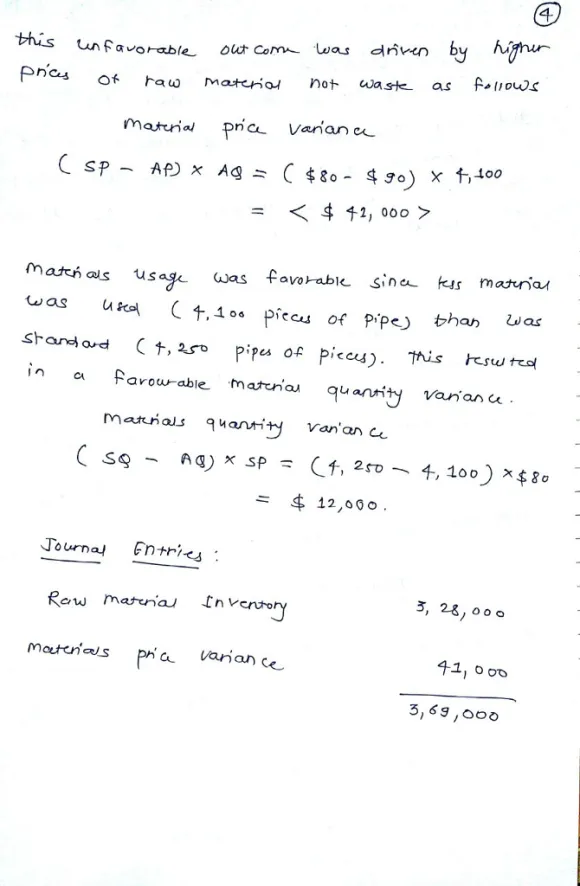 4
this unfavorable outcome was driven by higher
prices of raw material not waste as follows
material price variance
( SP - AP) × AQ = ( $80 - $90) × 4,100
= < $ 41,000 >
materials usage was favorable since less material
was used ( 4,100 pieces of pipe) than was
standard ( 4,250 pipes of pieces). This resulted
in a favourable material quantity variance.
Materials quantity variance
( SQ - AQ) × SP = (4,250 - 4,100) × $80
= $ 12,000.
Journal Entries :
Raw material Inventory 3,28,000
materials price variance 41,000
3,69,000